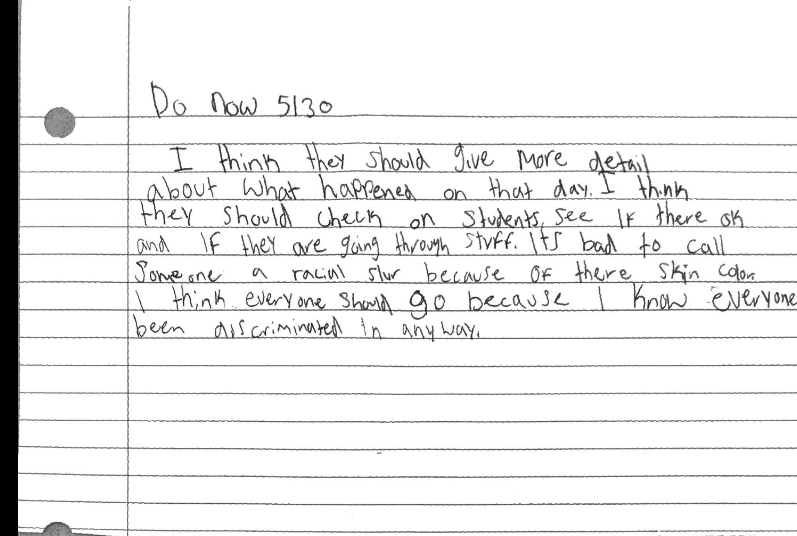 Do Now 5/30
I think they should give more detail
about what happened on that day. I think
they should check on students, see if there ok
and if they are going through stuff. Its bad to call
Someone a racial slur because of there skin color.
I think everyone should go because I know everyone
been discriminated in anyway.